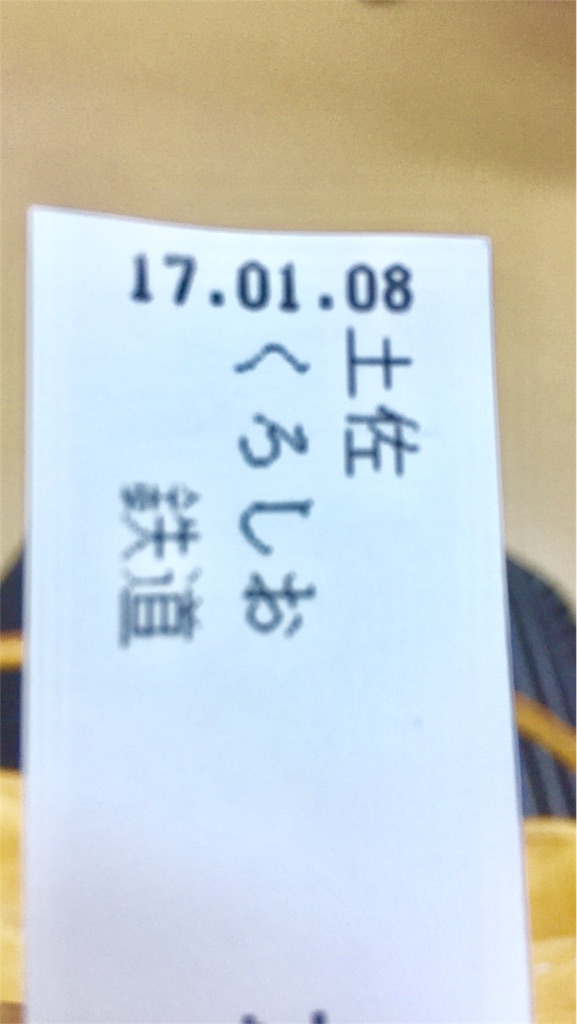 17.01.08
土佐
くろしお
鉄道